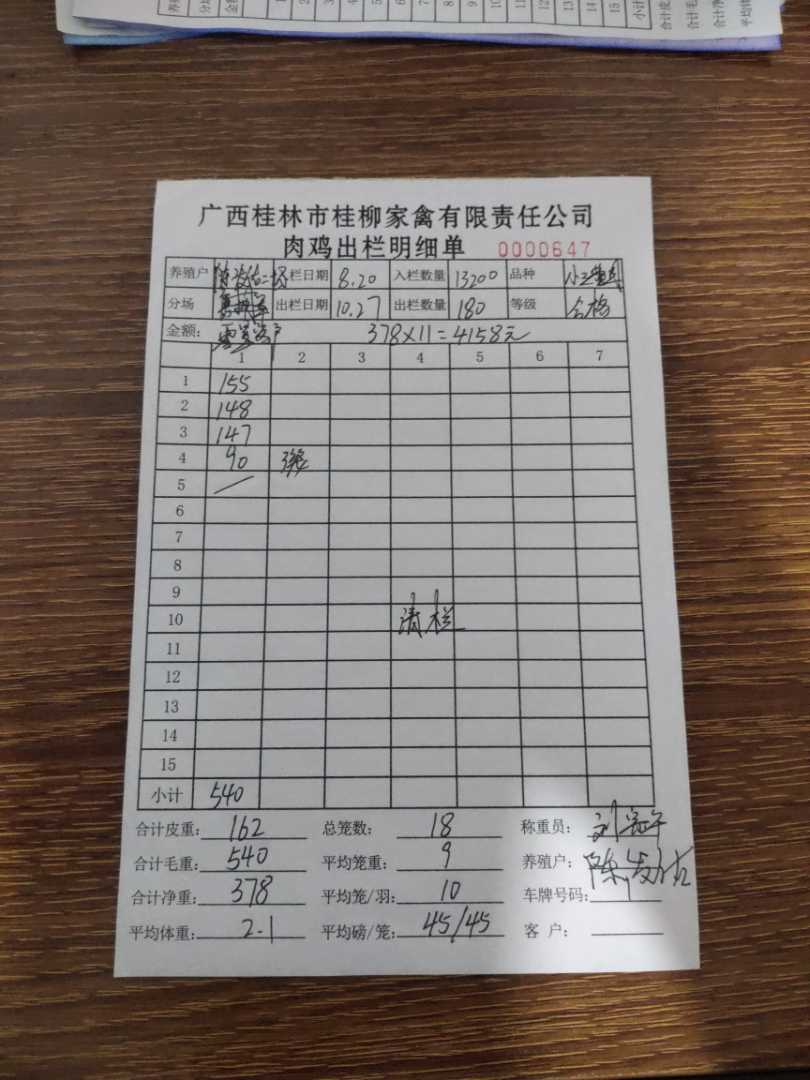 广西桂林市桂柳家禽有限责任公司
肉鸡出栏明细单 0000647
养殖户 栏日期 8.20 入栏数量 13200 品种
分场 出栏日期 10.27 出栏数量 180 等级 合格
金额: 378×11=4158元
1 2 3 4 5 6 7
1 155
2 148
3 147
4 90
5 —
6
7
8
9
10 清栏
11
12
13
14
15
小计 540
合计皮重: 162 总笼数: 18 称重员:
合计毛重: 540 平均笼重: 9 养殖户:
合计净重: 378 平均笼/羽: 10 车牌号码:
平均体重: 2.1 平均磅/笼: 45/45 客户: